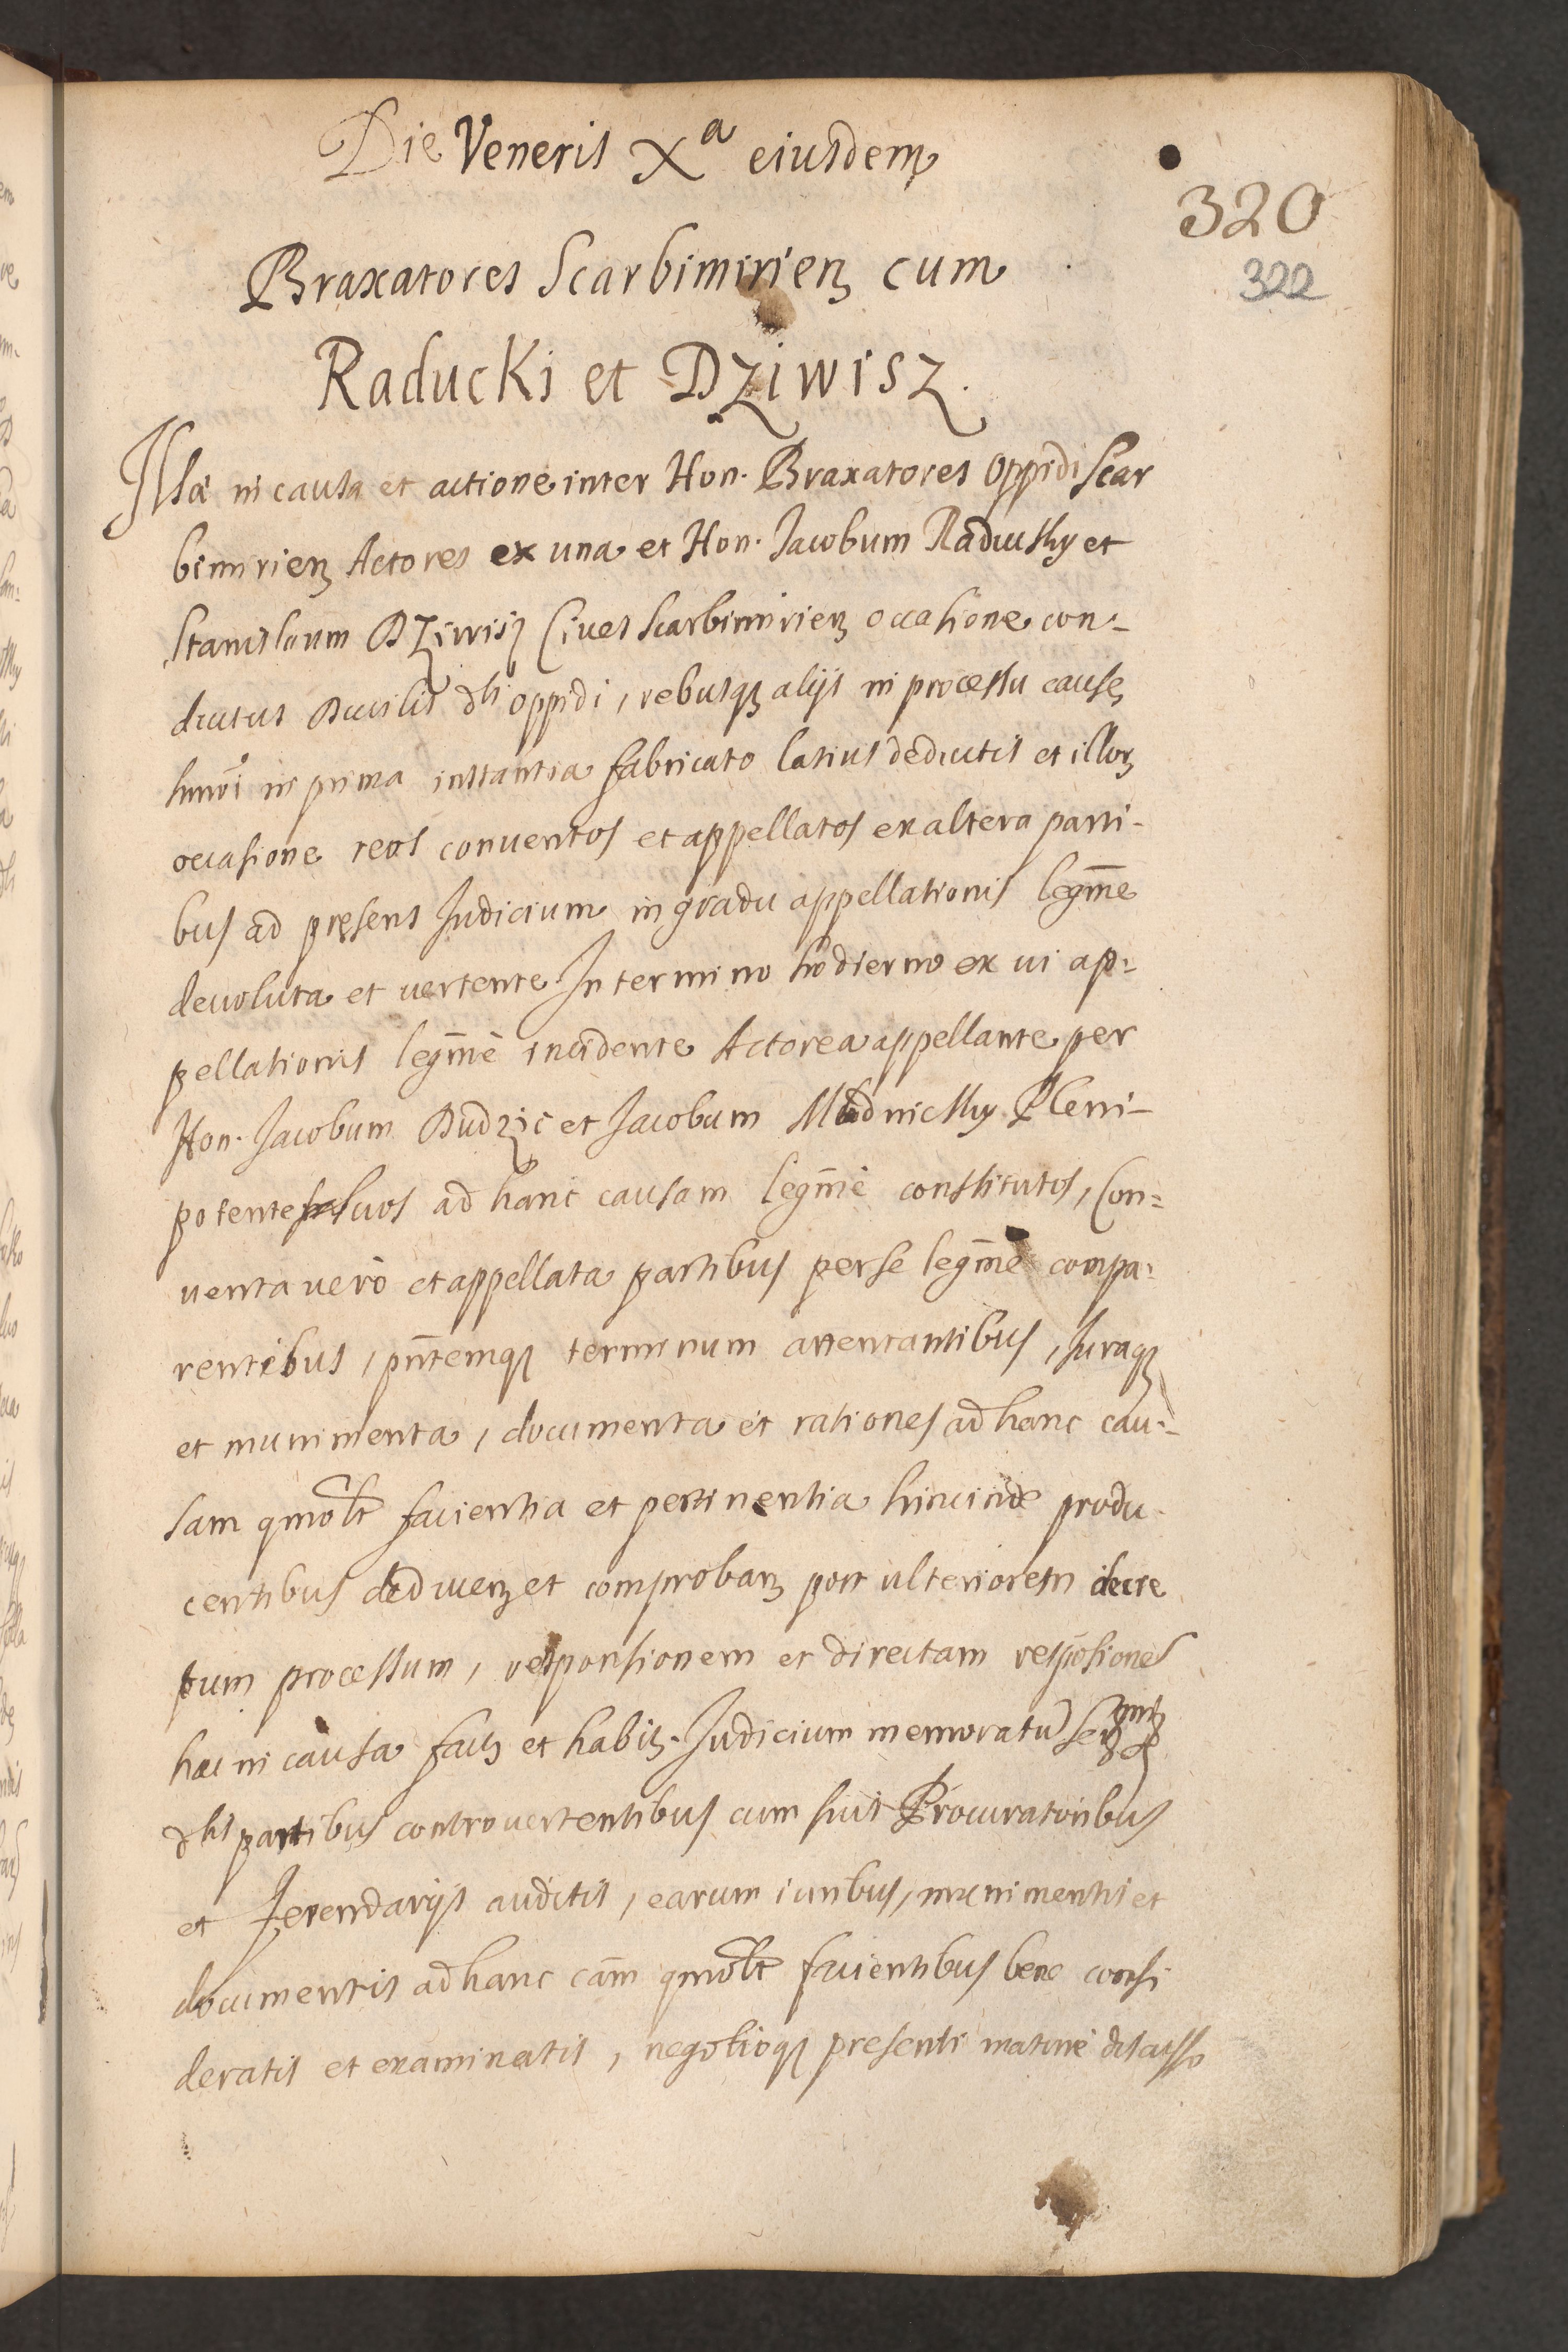 Die Veneris Xa eiusdem
320
322
Braxatores Scarbimirienẓ cum
Raducki et Dziwisz.
Ipsa in causa et actione inter Hon. Braxatores Oppidi Scar
bimirienẓ Actores ex una et Hon. Jacobum Raducsky et
Stanislaum Dziwisz Ciues Scarbimirienẓ occasione con-
ductus Ducilis dti oppidi, rebusqꝫ alijs in processu cause
hmōi in prima instantia fabricato latius deductis et illorꝫ
occasione reos conuentos et appellatos ex altera parti-
bus ad presens Judicium in gradu appellationis legm̄e
deuoluta et vertente. In termino hodierno ex ui ap-
pellationis legm̄e incidente Actorea appellante per
Hon. Jacobum Dudzic et Jacobum Mlodnicky Pleni-
potentes suos ad hanc causam legm̄e constitutos, Con-
uenta vero et appellata partibus per se legm̄e compa-
rentibus, pn̄temqꝫ terminum attentantibus, Juraqꝫ
et munimenta, documenta et rationes ad hanc cau-
sam qmolt facientia et pertinentia hincinde produ-
centibus deducenꝫ et comprobanꝫ post ulteriorem decre
tum processum, responsionem et directam respōsionē
hac in causa factꝫ et habitꝫ. Judicium memoratū
dtis partibus controuertentibus cum suis Procuratoribus
et Ferendarijs auditis, earum iuribus, munimentis et
documentis ad hanc cām qmolt facientibus bene consi
deratis et examinatis, negotioqꝫ presenti mature discusso